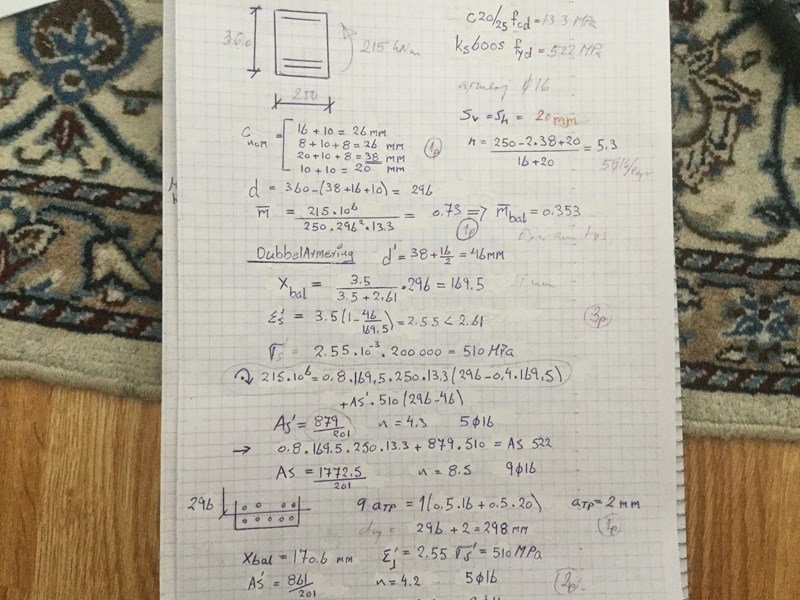 C20/25 fcd = 13.3 MPa
360
215 kNm
Ks600S fyd = 522 MPa
250
armering ϕ16
Sv = Sh = 20 mm
Cnom = 16 + 10 = 26 mm
8 + 10 + 8 = 26 mm
20 + 10 + 8 = 38 mm
10 + 10 = 20 mm
1p
n = 250 - 2·38 + 20 / 16 + 20 = 5.3
d = 360 - (38 + 16 + 10) = 296
m̄ = 215·10⁶ / 250·296²·13.3 = 0.73 => m̄bal = 0.353
1p
DubbelArmering d' = 38 + 16/2 = 46 mm
Xbal = 3.5 / 3.5 + 2.61 · 296 = 169.5
Es' = 3.5 (1 - 46/169.5) = 2.55 < 2.61
3p
σs' = 2.55·10⁻³·200 000 = 510 MPa
215·10⁶ = 0.8·169.5·250·13.3 (296 - 0.4·169.5)
+ As'·510 (296 - 46)
As' = 879/201 n = 4.3 5ϕ16
→ 0.8·169.5·250·13.3 + 879·510 = As 522
As = 1772.5/201 n = 8.5 9ϕ16
296
9·aTP = 4 (0.5·16 + 0.5·20) aTP = 2 mm
296 + 2 = 298 mm
1p
Xbal = 170.6 mm Es' = 2.55 σs' = 510 MPa
As' = 861/201 n = 4.2 5ϕ16
2p